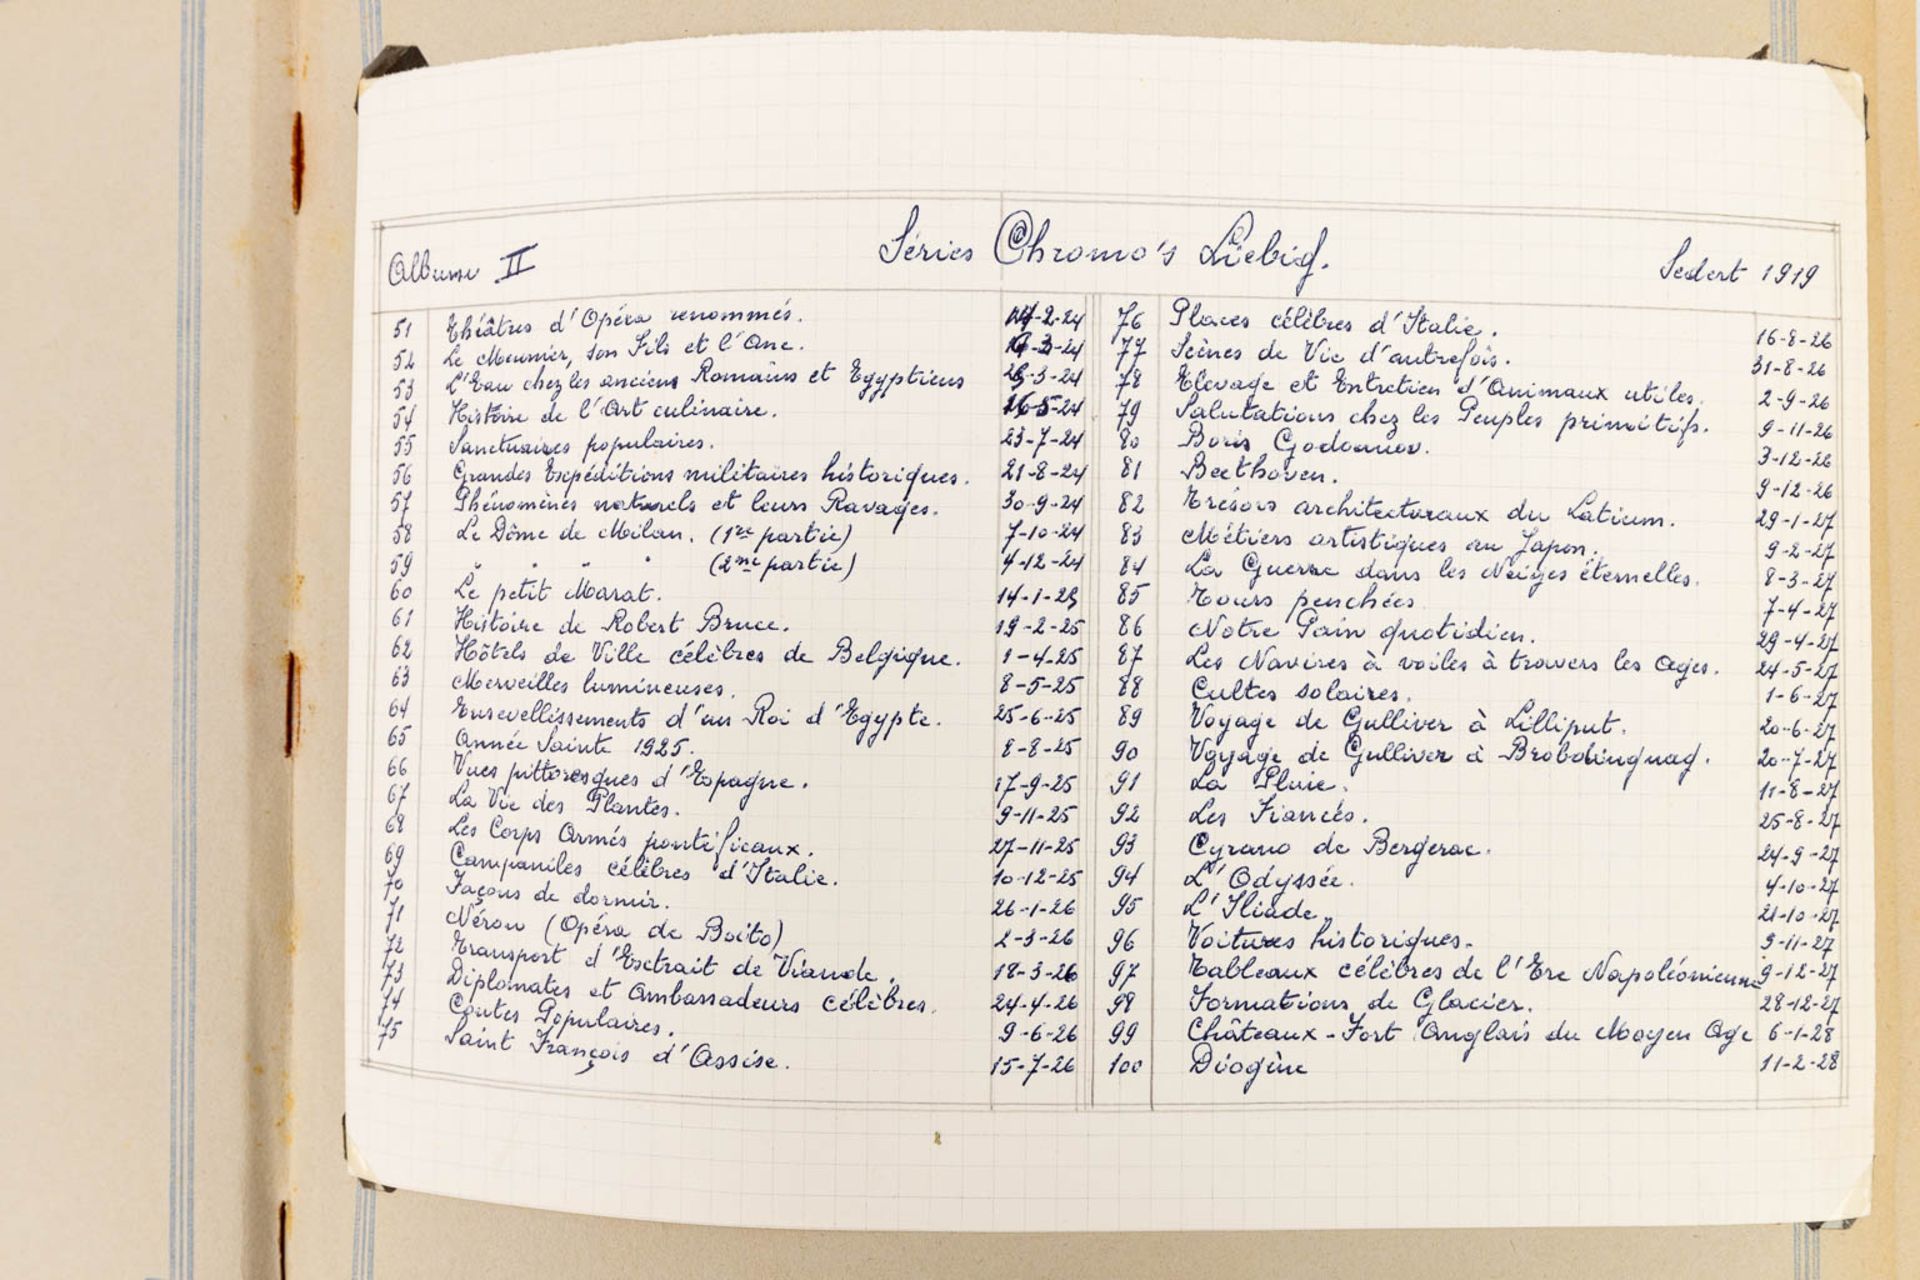 Album II
Séries Chromo's Liebig.
Sedert 1919
51 Théâtres d'Opéra renommés. 14-2-24
52 Le Meunier, son Fils et l'Ane. -3-24
53 L'Eau chez les anciens Romains et Egyptiens -3-24
54 Histoire de l'Art culinaire. 16-5-24
55 Sanctuaires populaires. 23-7-24
56 Grandes Expéditions militaires historiques. 21-8-24
57 Phénomènes naturels et leurs Ravages. 30-9-24
58 Le Dôme de Milan. (1re partie) 7-10-24
59 " " " " (2me partie) 4-12-24
60 Le petit Marat. 14-1-25
61 Histoire de Robert Bruce. 19-2-25
62 Hôtels de Ville célèbres de Belgique. 1-4-25
63 Merveilles lumineuses. 8-5-25
64 Ensevellissements d'un Roi d'Egypte. 25-6-25
65 Année Sainte 1925. 8-8-25
66 Vues pittoresques d'Espagne. 17-9-25
67 La Vie des Plantes. 9-11-25
68 Les Corps Armés pontificaux. 27-11-25
69 Campaniles célèbres d'Italie. 10-12-25
70 Façons de dormir. 26-1-26
71 Néron (Opéra de Boito) 2-3-26
72 Transport d'Extrait de Viande. 18-3-26
73 Diplomates et Ambassadeurs célèbres. 24-4-26
74 Contes Populaires. 9-6-26
75 Saint François d'Assise. 15-7-26
76 Places célèbres d'Italie. 16-8-26
77 Scènes de Vie d'autrefois. 31-8-26
78 Elevage et Entretien d'Animaux utiles. 2-9-26
79 Salutations chez les Peuples primitifs. 9-11-26
80 Boris Godounov. 3-12-26
81 Beethoven. 9-12-26
82 Trésors architecturaux du Latium. 29-1-27
83 Métiers artistiques au Japon. 9-2-27
84 La Guerre dans les Neiges éternelles. 8-3-27
85 Tours penchées 7-4-27
86 Notre Pain quotidien. 29-4-27
87 Les Navires à voiles à travers les Ages. 24-5-27
88 Cultes solaires. 1-6-27
89 Voyage de Gulliver à Lilliput. 20-6-27
90 Voyage de Gulliver à Brobdingnag. 20-7-27
91 La Pluie. 11-8-27
92 Les Fiancés. 25-8-27
93 Cyrano de Bergerac. 24-9-27
94 L'Odyssée. 4-10-27
95 L'Iliade. 21-10-27
96 Voitures historiques. 9-11-27
97 Tableaux célèbres de l'Ere Napoléonienne 9-12-27
98 Formations de Glacier. 28-12-27
99 Châteaux-Fort Anglais du Moyen Age 6-1-28
100 Diogène 11-2-28